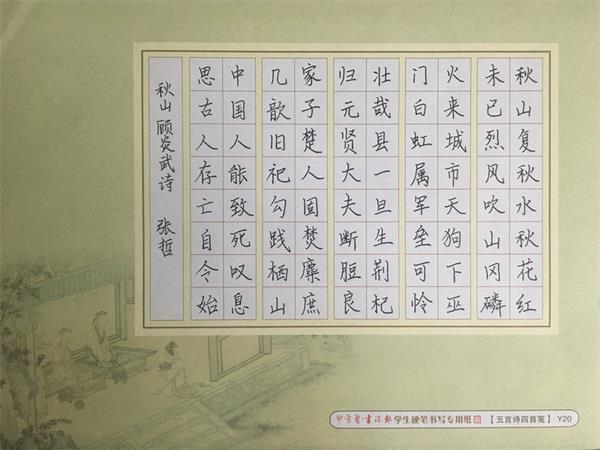 秋山复秋水秋花红
未已烈风吹山冈磷
火来城市天狗下巫
门白虹属军垒可怜
壮哉县一旦生荆杞
归元贤大夫断脰良
家子楚人固焚麇庶
几歆旧祀勾践栖山
中国人能致死叹息
思古人存亡自令始
秋山 顾炎武诗 张哲
学生硬笔书写专用纸 【五言诗四首笺】 Y20